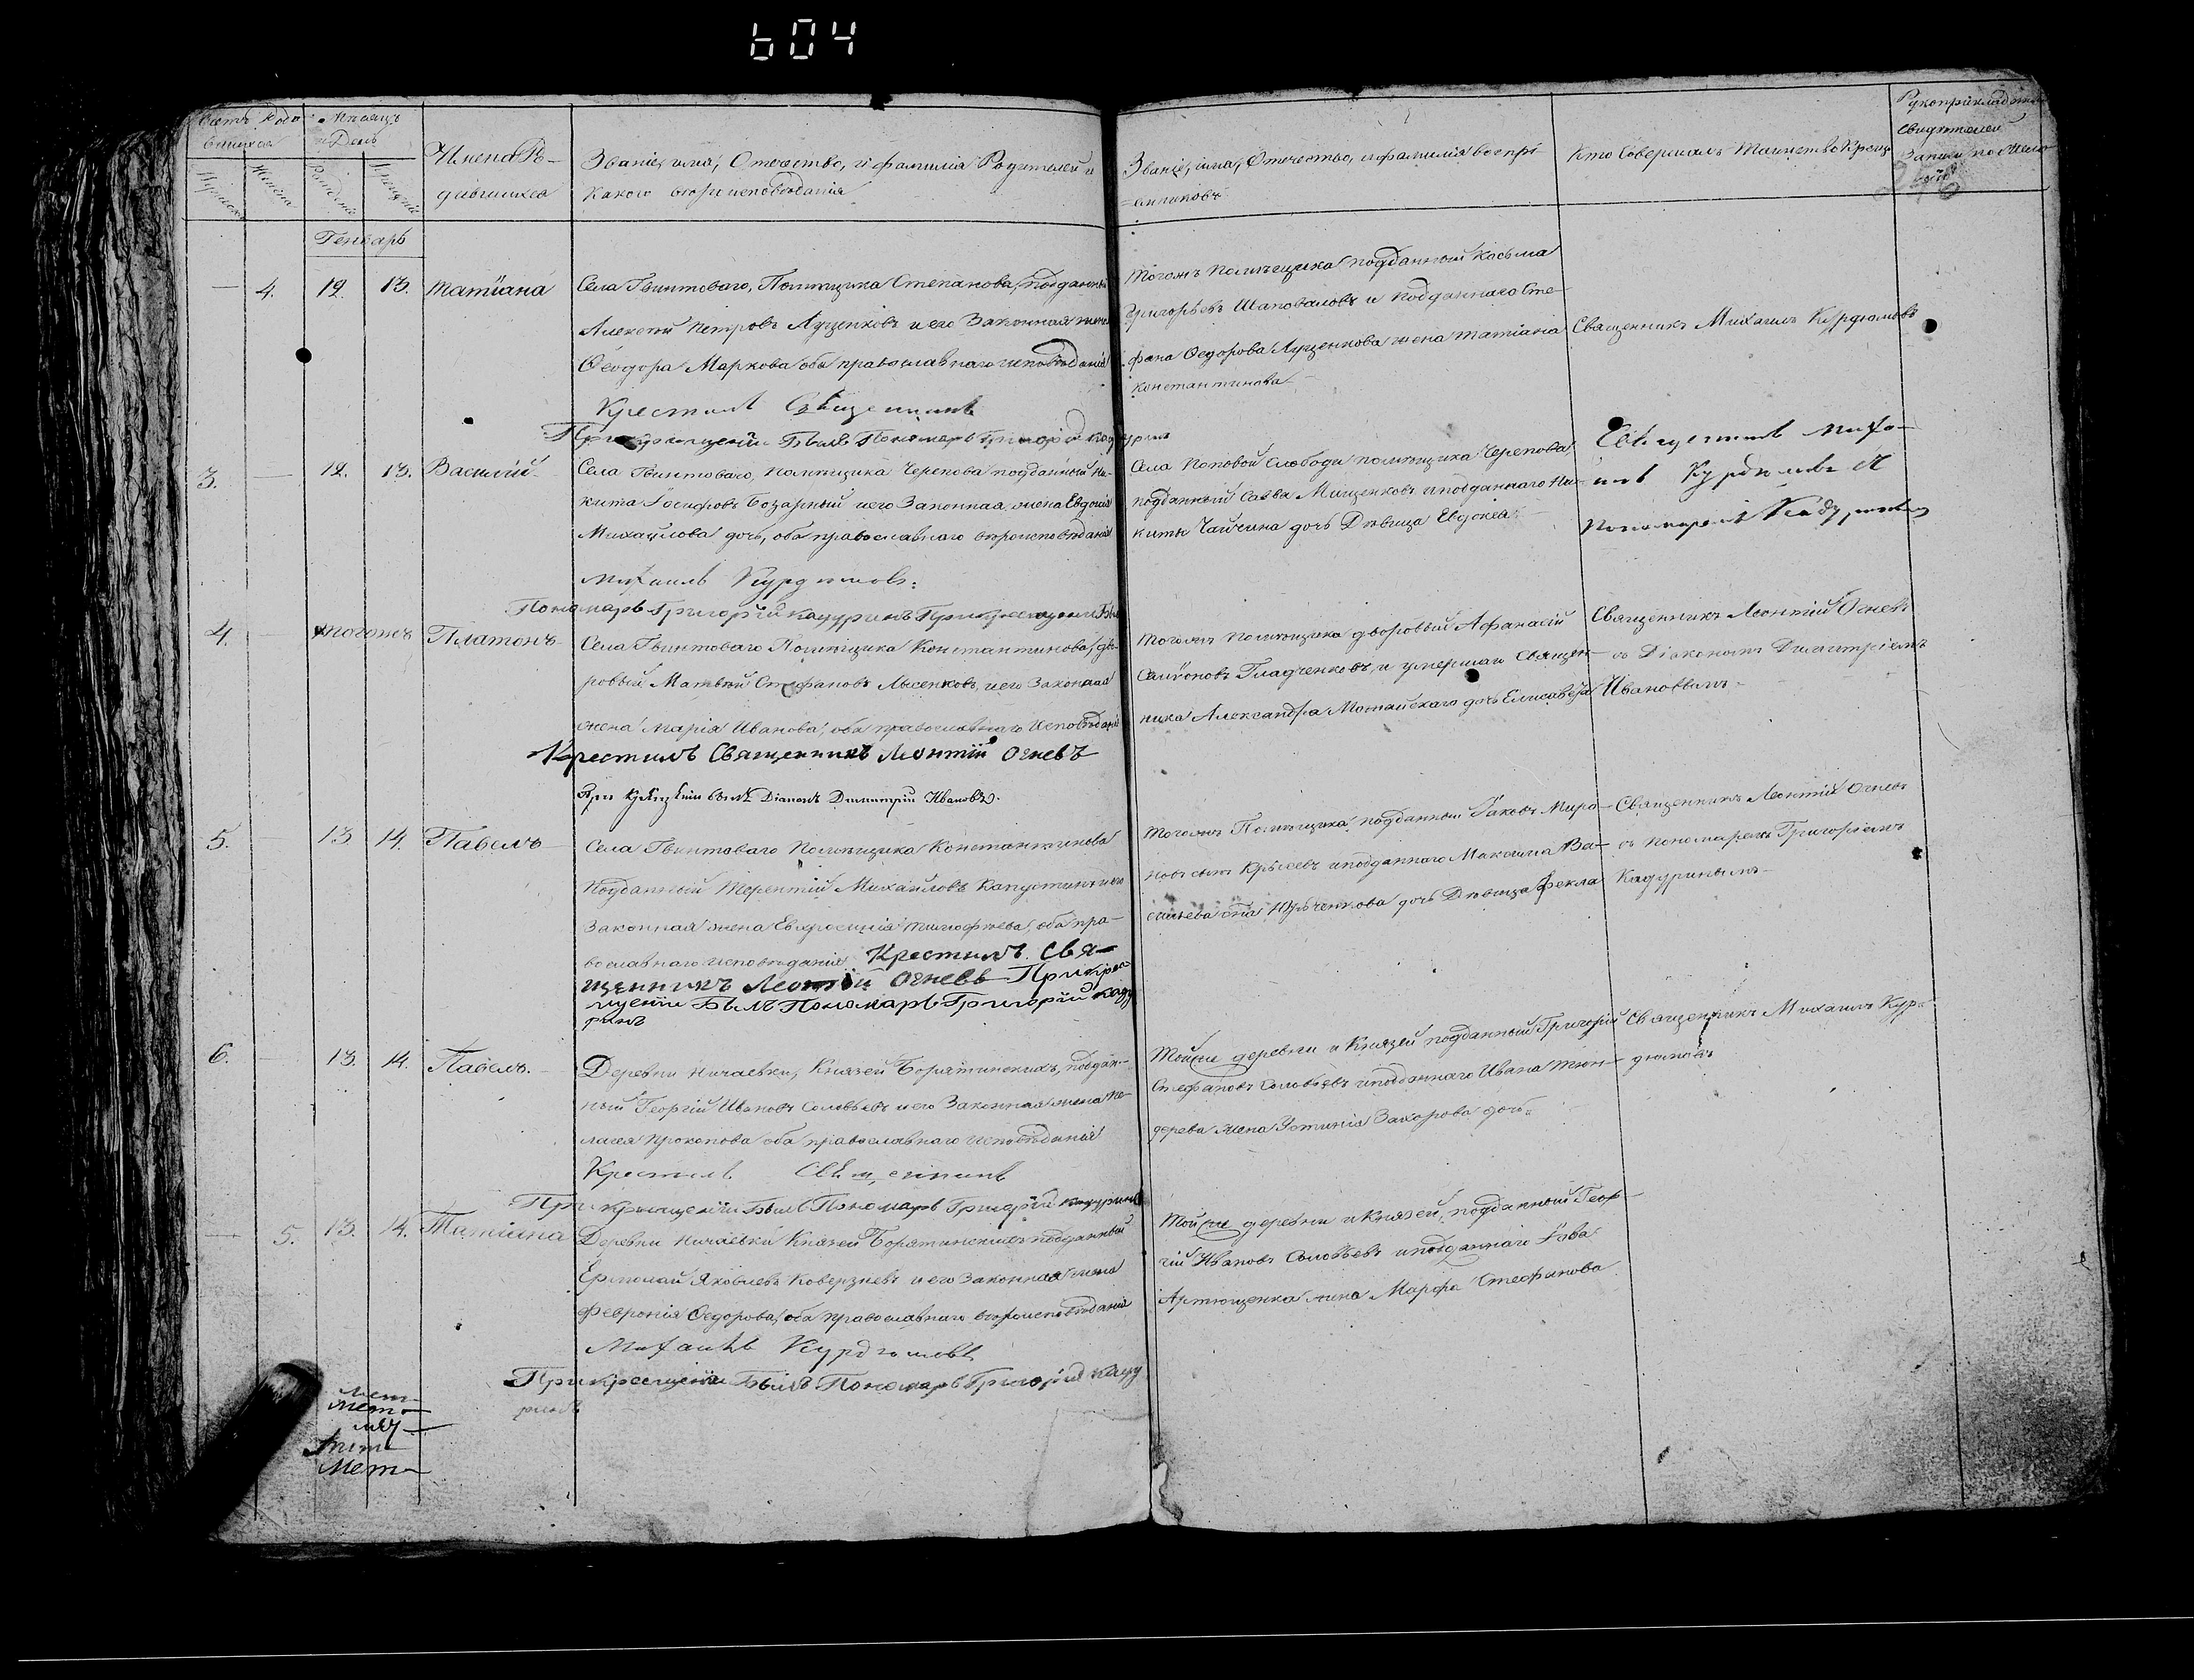 604
Счетъ Родившихся
Мѣсяцъ и День
Имена Родившихся
Званіе, имя, Отчество, и фамилія Родителей и
Какого вѣроисповѣданія
Званіе, имя, Отчество, и фамилія воспрі-
емниковъ
Кто Совершалъ Таинство Крещ
Рукоприкладство
свидѣтелей
Записи по желан
Мужеска
Женска
Рожденія
Крещенія
Генварь
4. 12. 13. Татіана
Села Гвинтоваго, Помѣщика Степанова, подданный
Алексѣй Петровъ Луценковъ и его Законная жена
Ѳеодора Маркова оба православнаго исповѣданія
Крестилъ Священникъ
При крещеніи Былъ Пономарь Григорій Кадуринъ
Тогожъ помѣщика подданный Косьма
Григорьевъ Шаповаловъ и подданнаго Сте-
фана Ѳедорова Луценкова жена Татіана
Константинова
Священникъ Михаилъ Курдюмовъ
3. 12. 13. Василій
Села Гвинтоваго, помѣщика Черепова подданный Ни-
кита Іосифовъ Базарный и его Законная жена Евдокія
Михайлова дочь, оба православнаго вѣроисповѣданія
Михаилъ Курдюмовъ:
Пономарь Григорій Кадуринъ При крещеніи Былъ
Села Поповой Слободы помѣщика Черепова
подданный Савва Мищенковъ и подданнаго Ни-
киты Чайчина дочь Дѣвица Евдокея
Священникъ Миха-
илъ Курдюмовъ
Пономаремъ Кадуринымъ
4. тогожъ Платонъ
Села Гвинтоваго Помѣщика Константинова, дво-
ровый Матвѣй Стефановъ Лысенковъ, и его Законная
жена Марія Иванова, оба православнаго Исповѣданія
Крестилъ Священникъ Леонтій Огневъ
При Крещеніи былъ Діаконъ Димитрій Ивановъ.
Тогожъ помѣщика дворовый Афанасій
Самсоновъ Гладченковъ, и умершаго Священ-
ника Александра дочь Елисавета
Священникъ Леонтій Огневъ
съ Діакономъ Димитріемъ
Ивановымъ
5. 13 14. Павелъ
Села Гвинтоваго Помѣщика Константинова
Подданный Терентій Михайловъ Капустинъ и его
Законная жена Евфросинія Тимофѣева, оба пра-
вославнаго исповѣданія Крестилъ Свя-
щенникъ Леонтій Огневъ При крес-
щеніи Былъ Пономарь Григорій Каду
ринъ
Тогожъ Помѣщика подданный Іаковъ Миро-
новъ сынъ и подданнаго Максима Ва-
сильева дочь Дѣвица Фекла
Священникъ Леонтій Огневъ
съ Пономаремъ Григоріемъ
Кадуринымъ
6. 13. 14. Павелъ.
Деревни Ничаевки, Князей Борятинскихъ, поддан-
ный Георгій Ивановъ Соловьевъ и его Законная жена Пе-
лагея Прокопова оба православнаго исповѣданія
Крестилъ Священникъ
При крещеніи Былъ Пономарь Григорій Кадуринъ
Той же деревни и Князей подданный Григорій
Стефановъ Соловьевъ и подданнаго Ивана Тюн-
дерева жена Устинія Захорова дочь
Священникъ Михаилъ Кур-
дюмовъ
5. 13. 14. Татіана
Деревни Ничаевки Князей Борятинскихъ подданный
Ермолай Яковлевъ Коверзневъ и его Законная жена
Февронія Ѳедорова, оба православнаго вѣроисповѣданія
Михаилъ Курдюмовъ
При крещеніи Былъ Пономарь Григорій Каду
ринъ
Той же деревни и Князей, подданный Геор-
гій Ивановъ Соловьевъ и подданнаго
Артющенка жена Марфа Стефанова